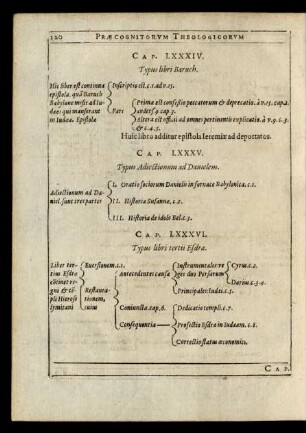 120 PRÆCOGNITORVM THEOLOGICORVM
CAP. LXXXIV.
Typus libri Baruch.
Hic liber est continua epistola, quā Baruch Babylone misit ad Iudæos qui manserant in Iudæa. Epistolæ
Inscriptio est. c.1. ad v.15.
Pars
Prima est confessio peccatorum & deprecatio. à v.15. cap.1. ad
Altera est officii ad
& c.4.5.
Huic libro additur epistola Ieremiæ ad deportatos.
CAP. LXXXV.
Typus Adiectionum ad Danielem.
Adiectionum ad Daniel. sunt tres partes
I. Oratio sociorum Danielis in fornace Babylonica. c.1.
II. Historia Susannæ. c.2.
III. Historia de idolo Bel. c.3.
CAP. LXXXVI.
Typus libri tertii Esdræ.
Liber tertius Esdræ
Euersionem. c.1.
Restaurationem, cuius
Antecedentes causæ
Instrumentales reges duo Persarum
Cyrus. c.2.
Darius. c.3.4.
Principales: Iudæi. c.5.
Coniuncta. cap.6.
Consequentia
Dedicatio templi. c.7.
Profectio Esdræ in Iudæam. c.8.
Correctio status œconomici.
CAP.